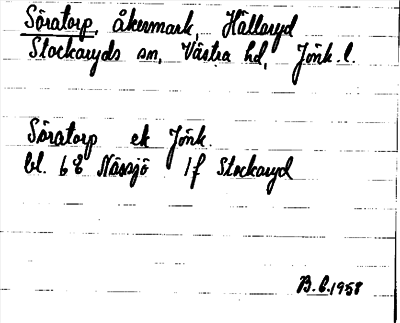 Söratorp, åkermark, Hällaryd
Stockaryds sn, Västra hd, Jönk. l.
Söratorp ek Jönk.
bl. 6 E Nässjö 1f Stockaryd
B.C. 1958